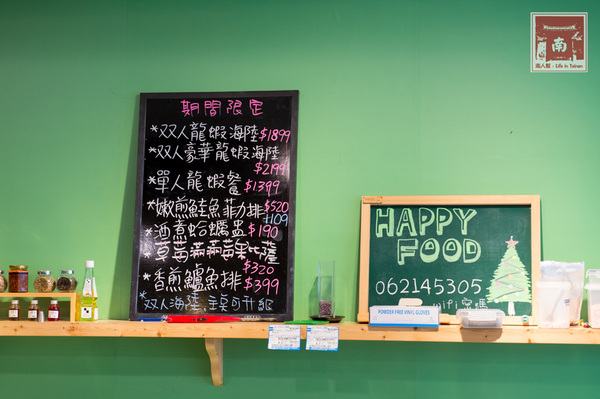 期間限定
*双人龍蝦海陸$1899
*双人豪華龍蝦海陸
$2199
*單人龍蝦餐
$1399
*嫩煎鮭魚菲力排$520
$109
*酒煮蛤蠣盅$190
*草莓滿滿莓果比薩
$320
*香煎鱸魚排$399
*双人海陸
可升級
HAPPY
FOOD
062145305
wifi密碼
POWDER FREE VINYL GLOVES
南
南人幫 - Life in Tainan